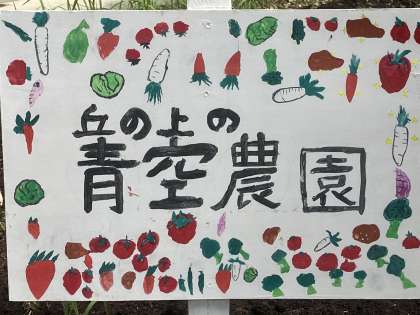 丘の上の
青空農園